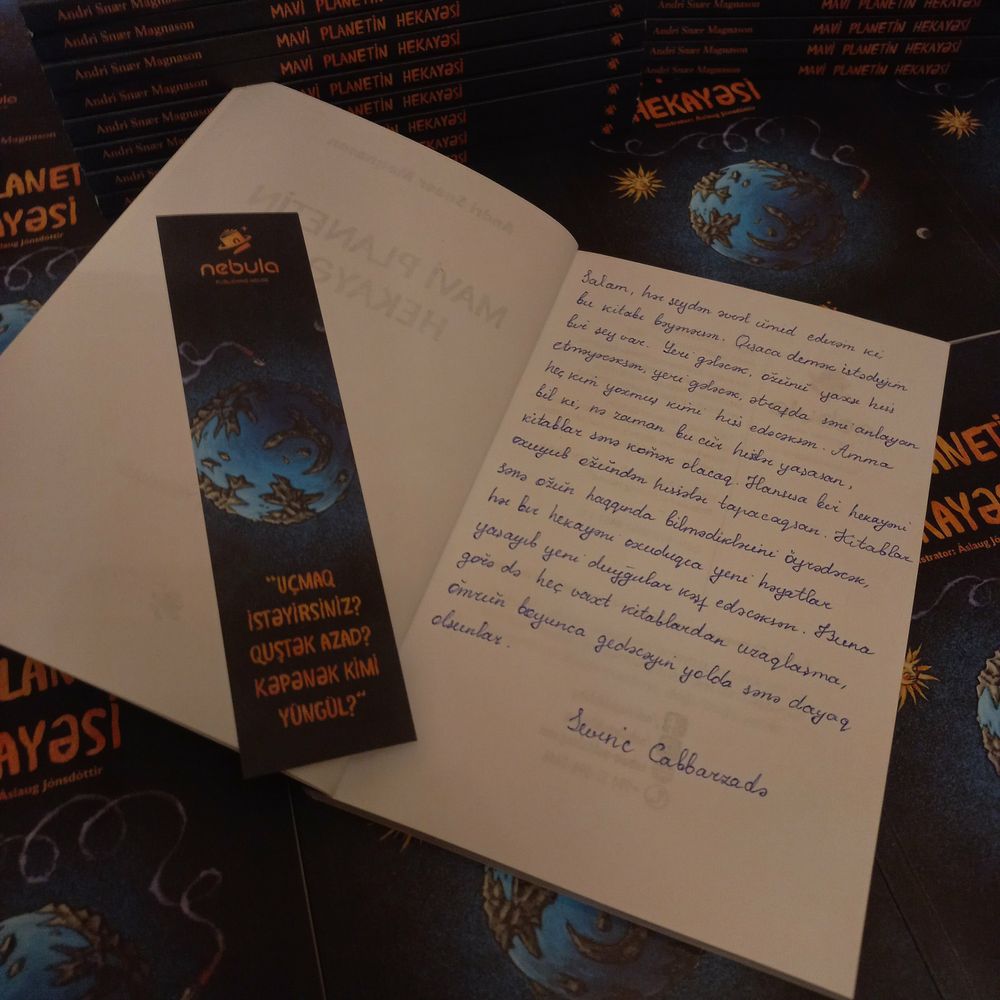 Andri Snær Magnason MAVİ PLANETİN HEKAYƏSİ
Andri Snær Magnason MAVİ PLANETİN HEKAYƏSİ
Andri Snær Magnason MAVİ PLANETİN HEKAYƏSİ
Andri Snær Magnason MAVİ PLANETİN HEKAYƏSİ
Andri Snær Magnason PLANETİN HEKAYƏSİ
Andri Snær HEKAYƏSİ
Andri
Andri Snær Magnason MAVİ PLANETİN HEKAYƏSİ
Andri Snær Magnason MAVİ PLANETİN HEKAYƏSİ
Andri Snær Magnason MAVİ PLANETİN HEKAYƏSİ
Andri Snær Magnason MAVİ PLANETİN HEKAYƏSİ
HEKAYƏSİ
Magnason
Andri Snær Magnason
MAVİ PLANETİN
HEKAYƏ
nebula
PUBLISHING HOUSE
"UÇMAQ
İSTƏYİRSİNİZ?
QUŞTƏK AZAD?
KƏPƏNƏK KİMİ
YÜNGÜL?"
Salam, hər şeydən əvvəl ümid edirəm ki
bu kitabı bəyənərsən. Qısaca demək istədiyim
bir şey var. Yeri gələcək, özünü yaxşı hiss
etməyəcəksən, yeri gələcək, ətrafda səni anlayan
heç kim yoxmuş kimi hiss edəcəksən. Amma
bil ki, nə zaman bu cür hisslər yaşasan,
kitablar sənə kömək olacaq. Hansısa bir hekayəni
oxuyub özündən hissələr tapacaqsan. Kitablar
sənə özün haqqında bilmədiklərini öyrədəcək,
hər bir hekayəni oxuduqca yeni həyatlar
yaşayıb yeni duyğular kəşf edəcəksən. Buna
görə də heç vaxt kitablardan uzaqlaşma,
ömrün boyunca gedəcəyin yolda sənə dayaq
olsunlar.
Sevinc Cabbarzadə
LANET
AYƏSİ
Aslaug Jónsdóttir
ANETİ
KAYƏS
Aslaug Jóns
LAN
AYƏSİ
Aslaug Jónsdóttir